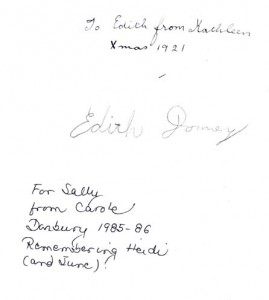 To Edith from Kathleen
Xmas 1921
Edith
For Sally
from Carole
Danbury 1985-86
Remembering Heidi
(and June)!